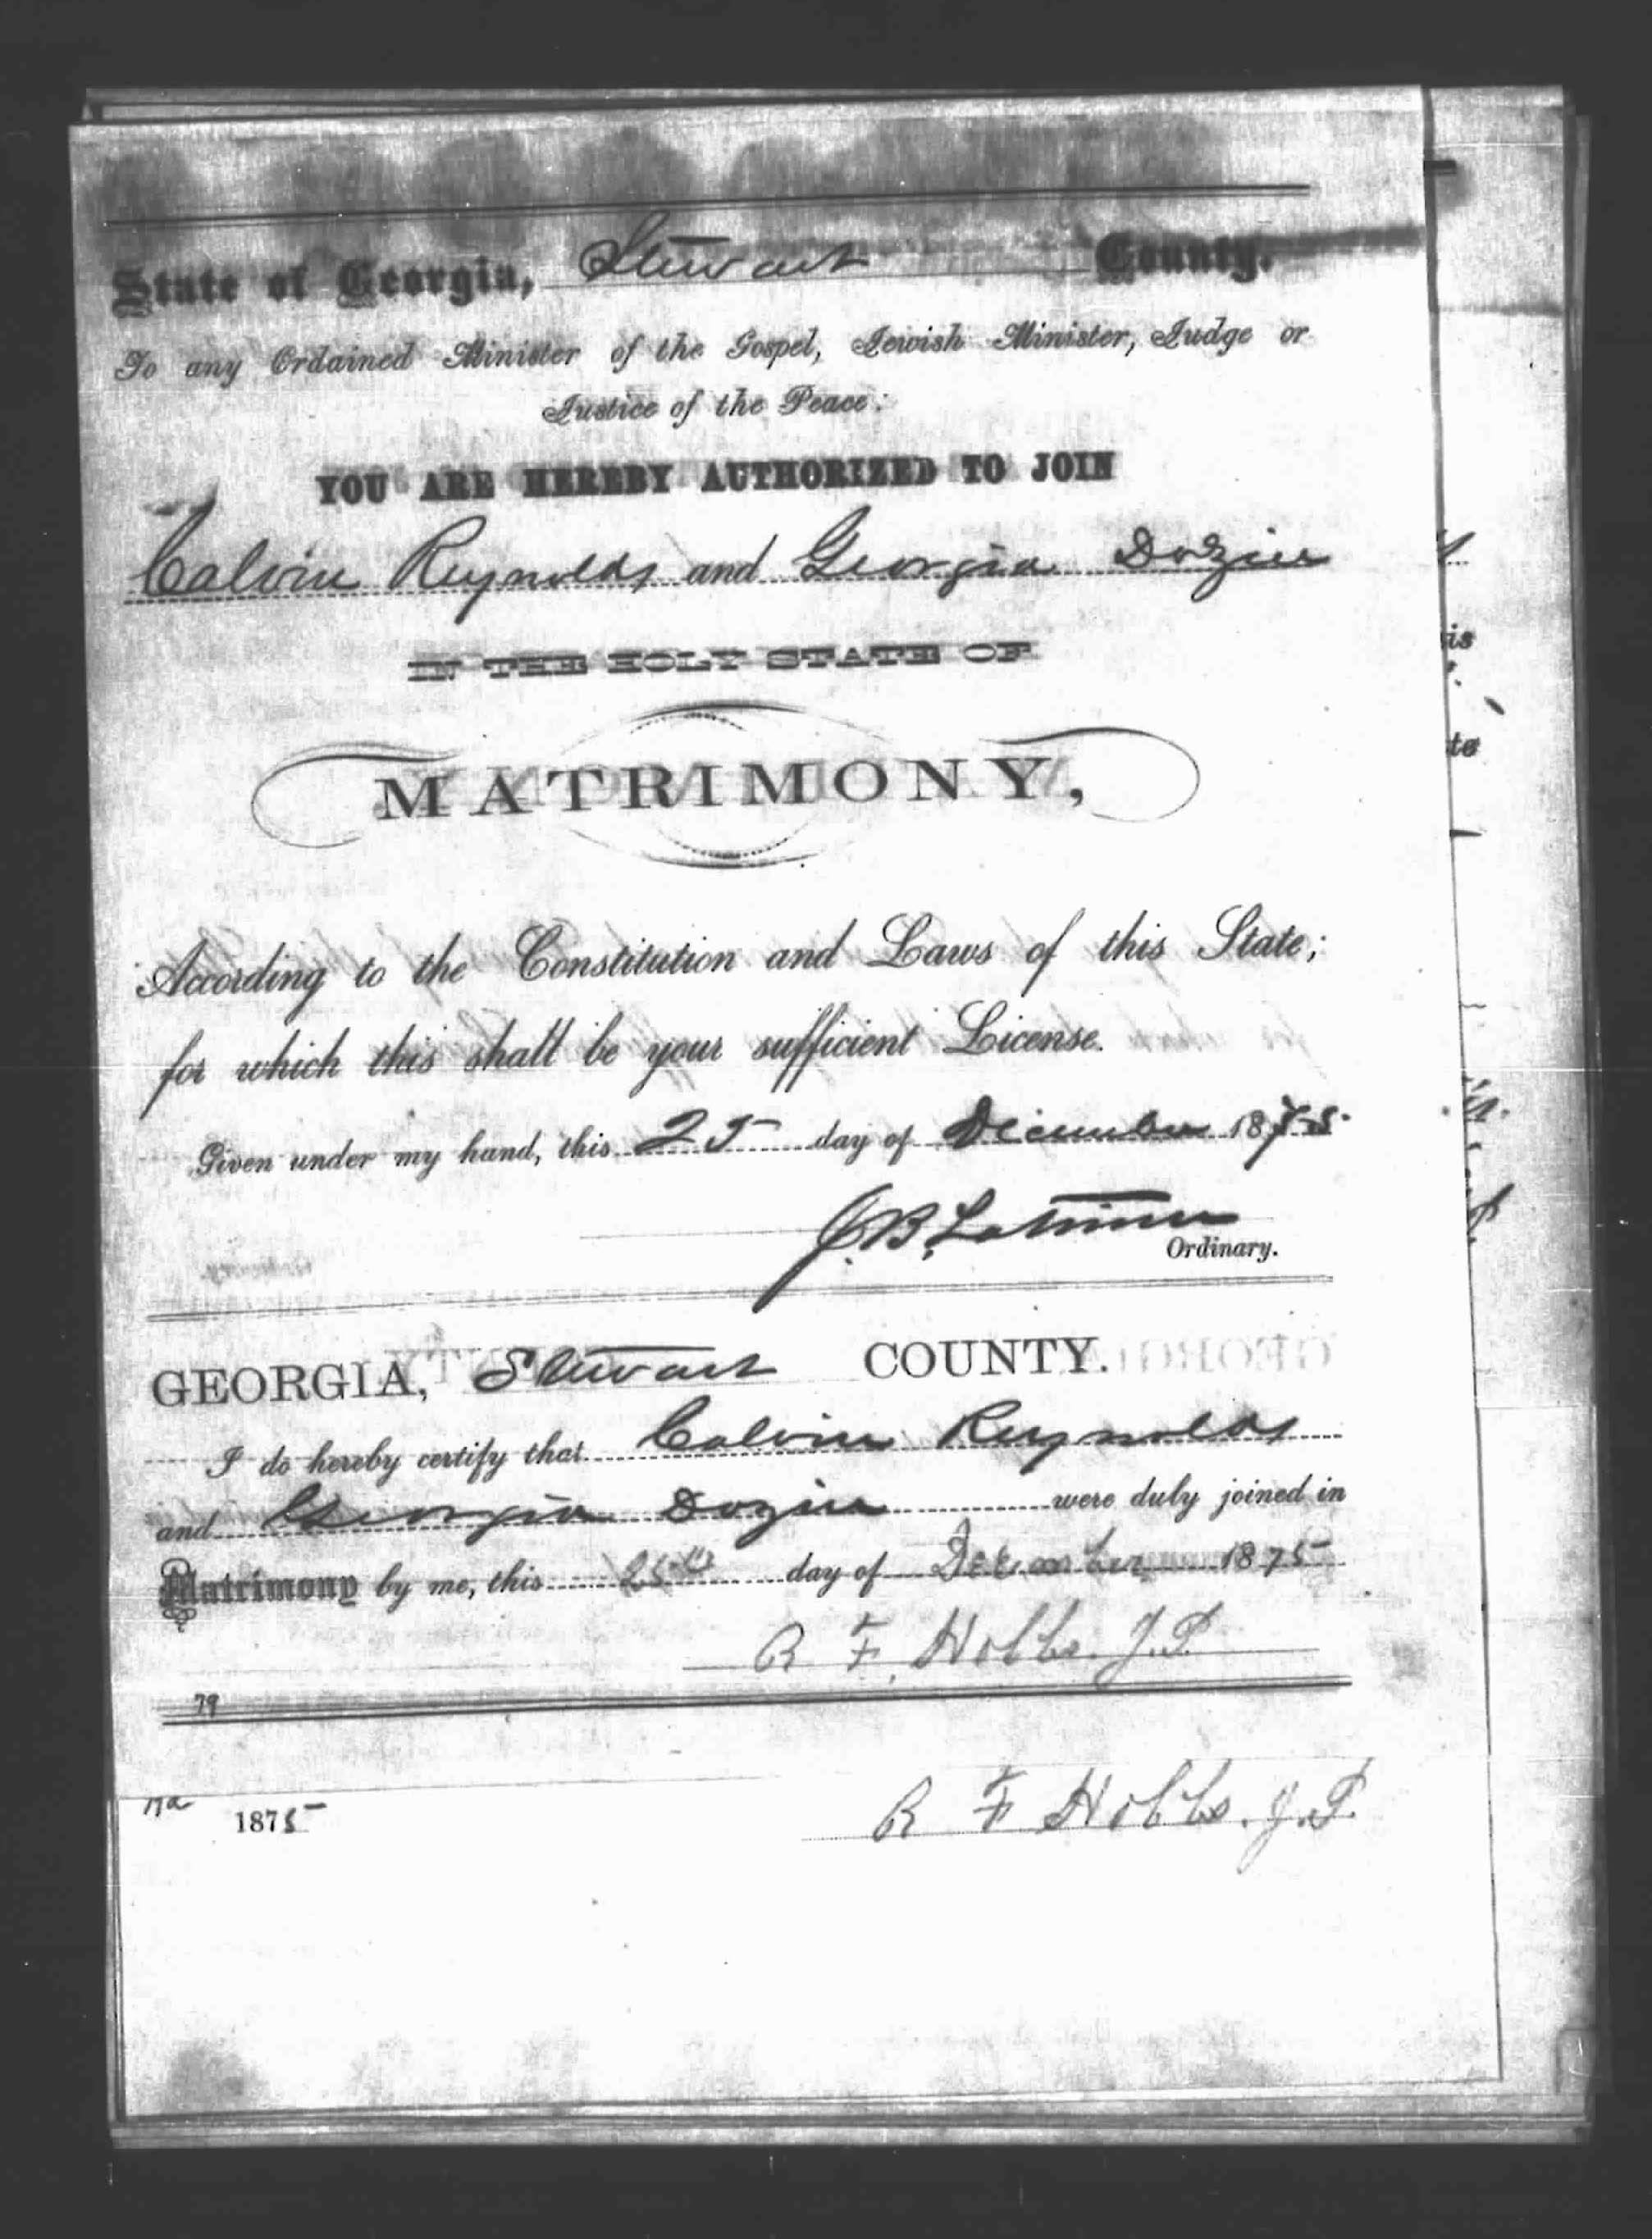 State of Georgia, Stewart County.
To any Ordained Minister of the Gospel, Jewish Minister, Judge or
Justice of the Peace:
YOU ARE HEREBY AUTHORIZED TO JOIN
Calvin Reynolds and Georgia Dozier
IN THE HOLY STATE OF
MATRIMONY,
According to the Constitution and Laws of this State;
for which this shall be your sufficient License.
Given under my hand, this 25 day of December 1875.
J. B. Latimer
Ordinary.
GEORGIA, Stewart COUNTY.
I do hereby certify that Calvin Reynolds
and Georgia Dozier were duly joined in
Matrimony by me, this 25th day of December 1875
R F. Hobbs. J.P
79
1875
R F Hobbs. J.P.
is
te